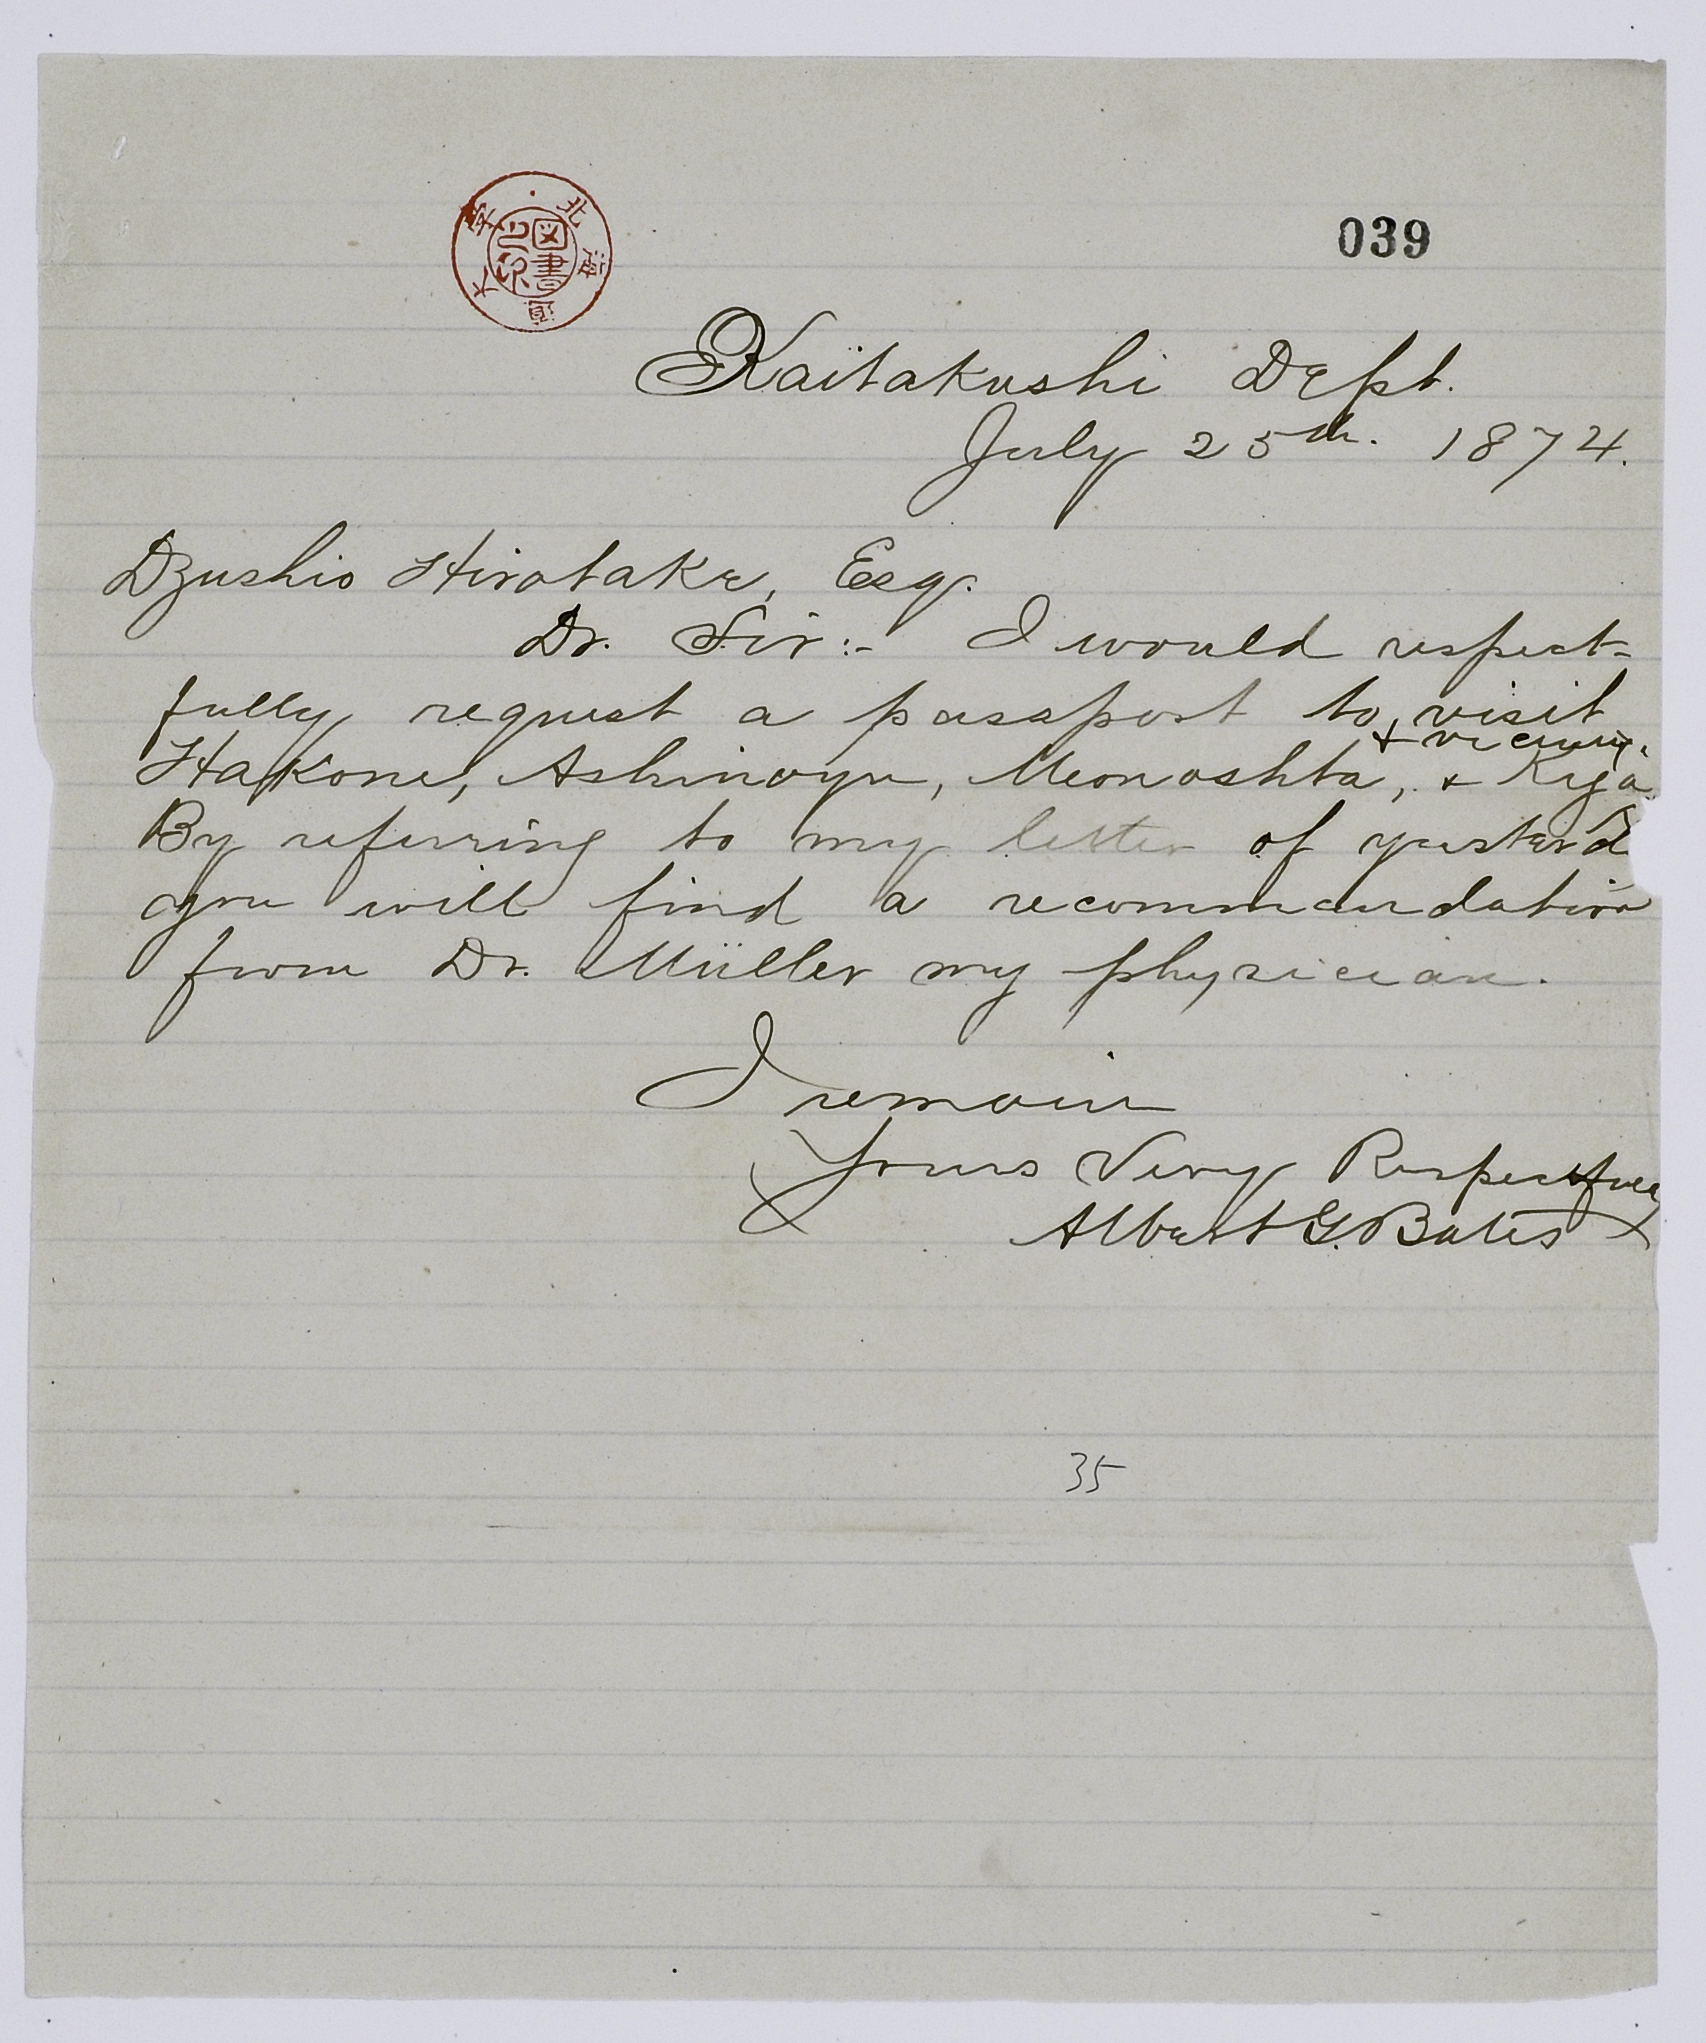 北海道大学
図書之印
039
Kaitakushi Dept.
July 25th. 1874.
Dzushio Hirotake, Esq.
Dr. Sir:- I would respect-
fully request a passport to visit
& vicinity.
Hakone, Ashinoyu, Meonoshta, & Kiga
By referring to my letter of yesterd
you will find a recommendation
from Dr. Müller my physician.
I remain
Yours Very Respectfully
Albert G. Bates
35